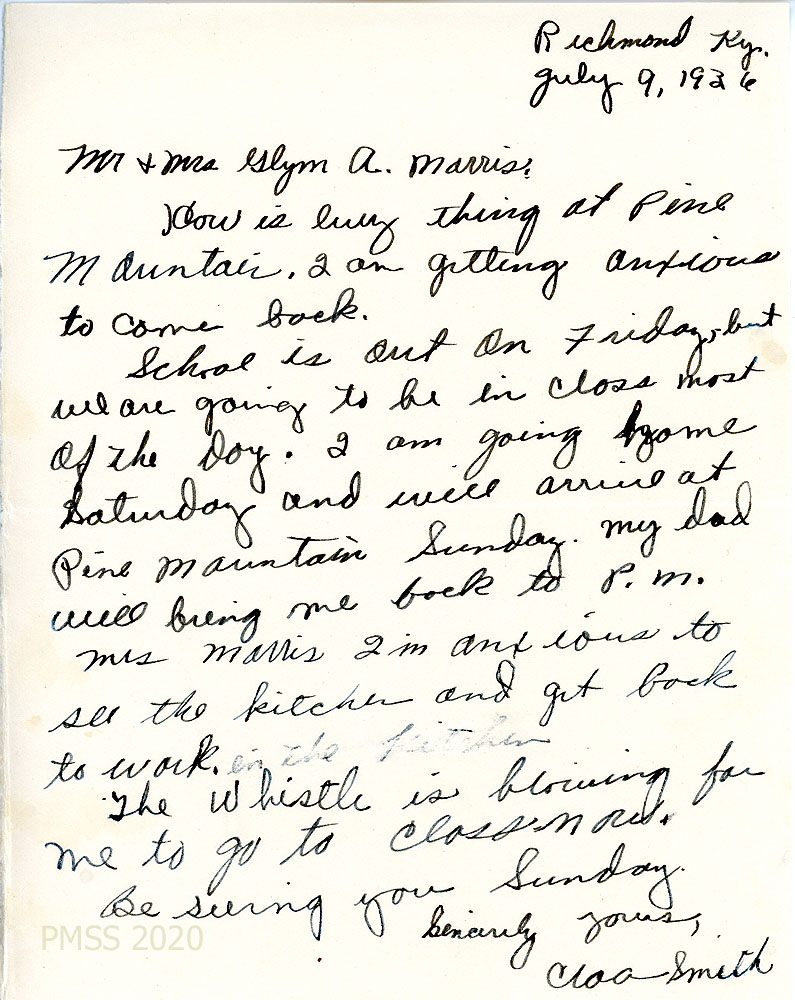 Richmond Ky.
July 9, 1936
Mr & Mrs Glynn A. Morris:
How is every thing at Pine
Mountain. I am getting anxious
to come back.
School is out on Friday, but
we are going to be in class most
of the day. I am going home
Saturday and will arrive at
Pine Mountain Sunday. My dad
will bring me back to P. M.
Mrs Morris I'm anxious to
see the kitchen and get back
to work. in the kitchen
The whistle is blowing for
me to go to class now.
Be seeing you Sunday.
Sincerely yours,
Cloa Smith
PMSS 2020